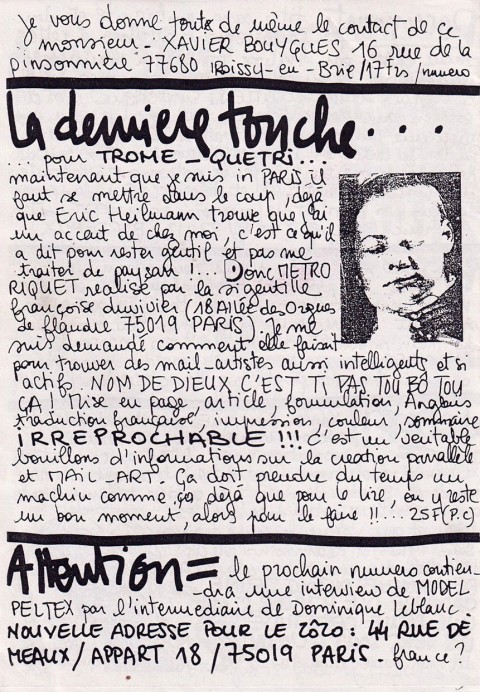 je vous donne toute de même le contact de ce
monsieur - XAVIER BOUYGUES 16 rue de la
pinsonnière 77680 ROISSY-en-Brie/17frs/numero
La derniere touche...
... pour TROME - QUETRI...
maintenant que je suis in PARIS il
faut se mettre dans le coup, dejà
que Eric Heilmann trouve que j'ai
un accent de chez moi, c'est ce qu'il
a dit pour rester gentil et pas me
traiter de paysan !... Donc METRO
RIQUET realisé par la si gentille
françoise duvivier (18 Allée des Orgues
de flandre 75019 PARIS). Je me
suis demandé comment elle faisait
pour trouver des mail-artistes aussi intelligents et si
actifs. NOM DE DIEUX C'EST TI PAS TOU BÔ TOU
ÇA ! Mise en page, article, formulation, Anglais
traduction française, impression, couleur, sommaire
IRREPROCHABLE !!! c'est un veritable
bouillons d'informations sur la creation parallèle
et MAIL-ART. Ça doit prendre du temps un
machin comme ça, dejà que pour le lire, on y reste
un bon moment, alors pour le faire !!... 25F(P.C)
Attention = le prochain numero contien-
-dra une interview de MODEL
PELTEX par l'intermediaire de Dominique Leblanc.
NOUVELLE ADRESSE POUR LE ZÔZO : 44 RUE DE
MEAUX/APPART 18/75019 PARIS. france?